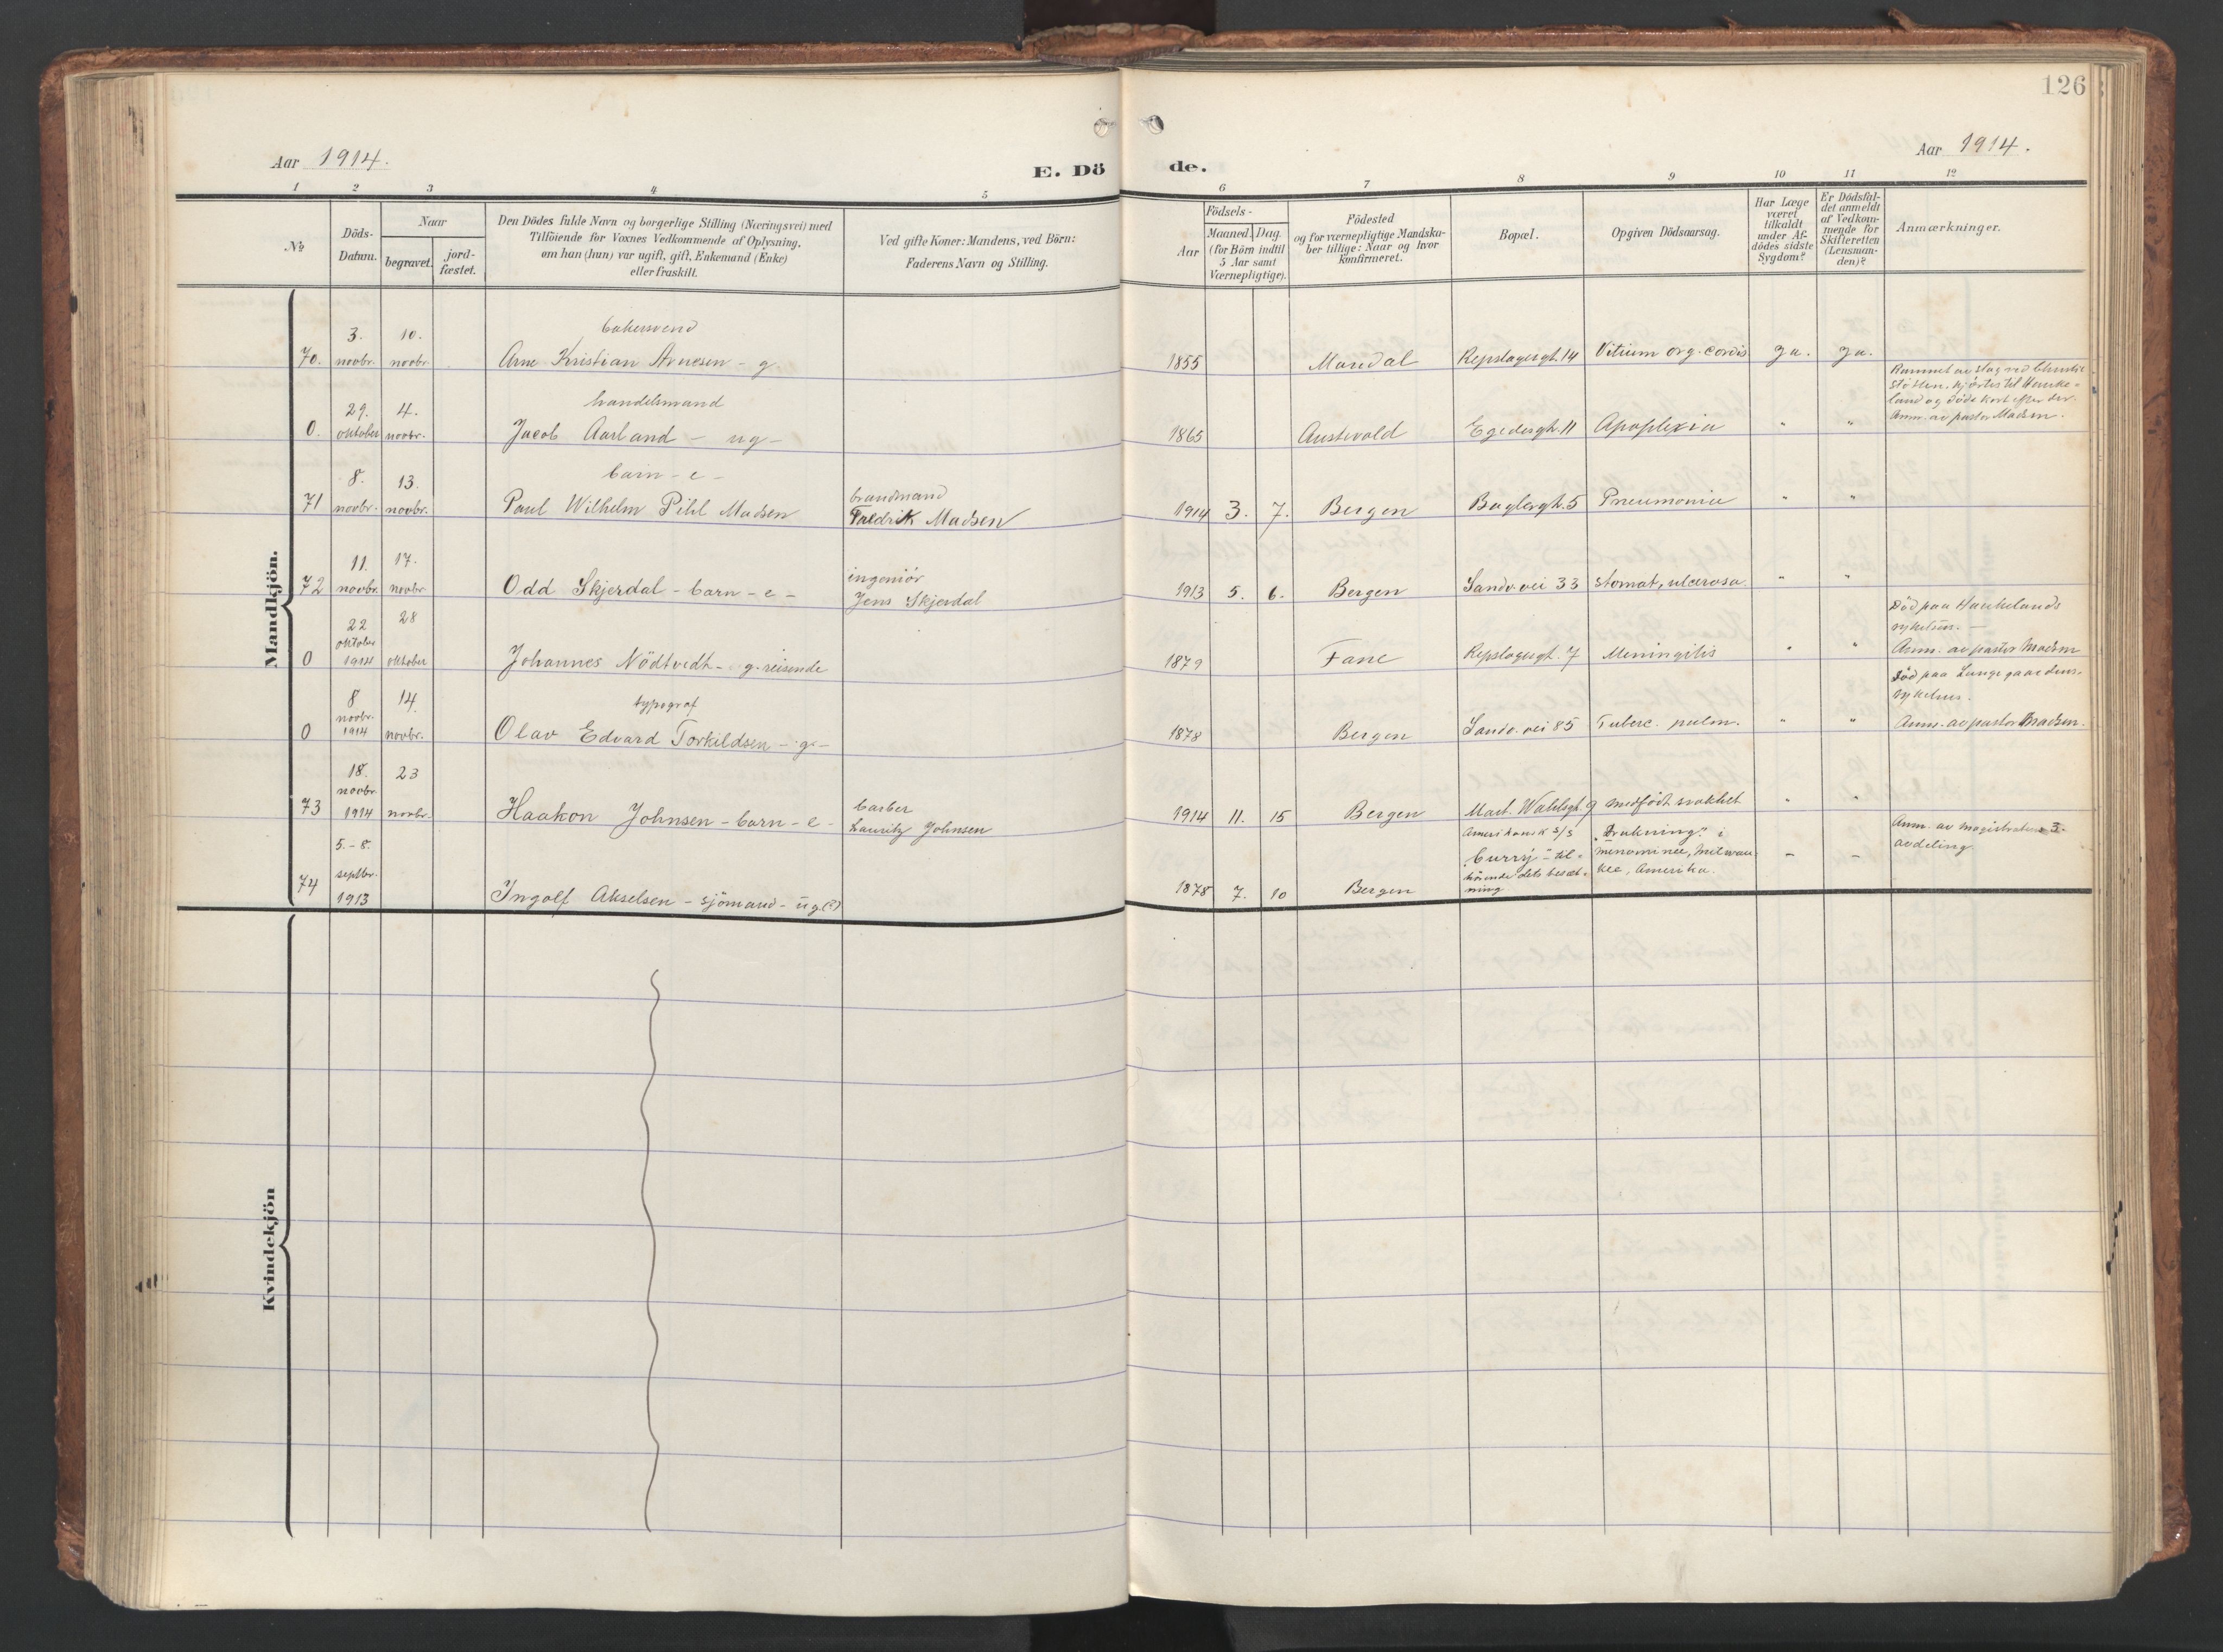 126
Aar 1914.
E. Dö
de.
Aar 1914.
1 2 3 4 5 6 7 8 9 10 11 12
№
Döds-
Datum.
Naar
begravet.
jord-
fæstet.
Den Dödes fulde Navn og borgerlige Stilling (Næringsvei) med
Tilföiende for Voxnes Vedkommende af Oplysning,
om han (hun) var ugift, gift, Enkemand (Enke)
eller fraskilt.
Ved gifte Koner: Mandens, ved Börn:
Faderens Navn og Stilling.
Födsels-
Aar
Maaned. Dag.
(for Börn indtil
5 Aar samt
Værnepligtige).
Födested
og for værnepligtige Mandska-
ber tillige: Naar og hvor
Konfirmeret.
Bopæl.
Opgiven Dödsaarsag.
Har Læge
været
tilkaldt
under Af-
dödes sidste
Sygdom?
Er Dödsfal-
det anmeldt
af Vedkom-
mende for
Skifteretten
(Lensman-
den)?
Anmærkninger.
Mandkjön.
3. 10. bakersvend
70. novbr. novbr. Arne Kristian Arnesen - g. 1855 Mandal Repslagergt. 14 Vitium org. cordis Ja. Ja.
29. 4. handelsmand
0. oktober novbr. Jacob Aarland - ug - 1865 Austevold Egedesgt. 11 Apoplexia " "
Rammet av slag ved Christie
støtten, kjørtes til Hauke-
land og døde kort efter der.
Anm. av pastor Madsen.
8. 13. barn - e -
71 novbr. novbr. Paul Wilhelm Pihl Madsen
brandmand
Fredrik Madsen
1914 3. 7. Bergen Baglergt. 5 Pneumonia " "
11. 17.
72 novbr. novbr. Odd Skjerdal - barn - e -
ingeniör
Jens Skjerdal
1913 5. 6. Bergen Sandv. vei 33 stomat, ulcerosa " "
22 28
oktober
0 1914 oktober Johannes Nödtvedt - g. reisende 1879 Fane Repslagergt. 7 Meningitis " "
Död paa Haukelands
sykehus. -
Anm. av pastor Madsen
8 14. typograf
novbr.
0 1914 novbr. Olav Edvard Torkildsen - g - 1878 Bergen Sandv. vei 85 Tuberc. pulm. " "
Död paa Lungegaardens-
sykehus.
Anm. av pastor Madsen.
18. 23
novbr.
73 1914 novbr. Haakon Johnsen - barn - e -
barber
Lauritz Johnsen
1914 11. 15 Bergen Mart. Wahlsgt. 9 medfödt svakhet " "
5. - 8.
septbr.
74 1913 Ingolf Akselsen - sjömand - ug (?)
1878 7. 10 Bergen
Amerikansk s/s
"Curry" - til-
hörende dets besæt-
ning
"Drukning" i
menominee, Milwau-
kee, Amerika.
- -
Anm. av magistratens 3.
avdeling
Kvindekjön